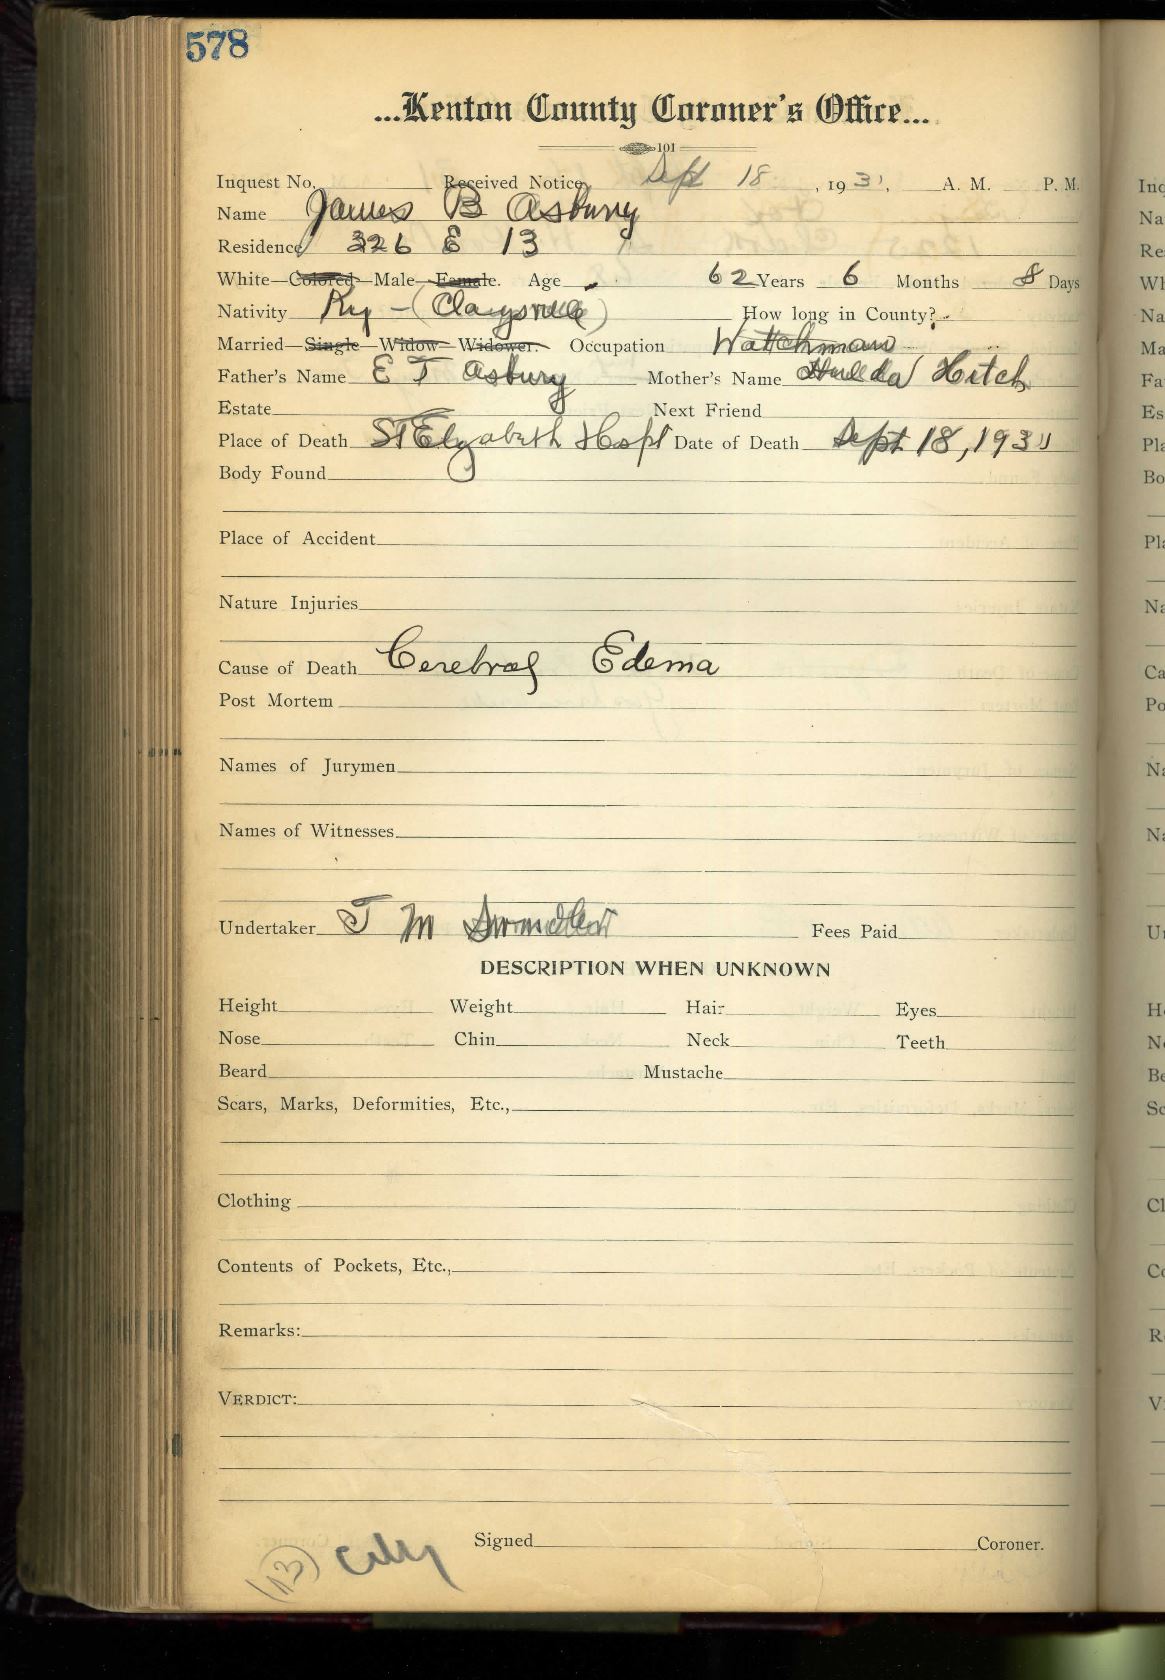 578
...Kenton County Coroner's Office...
101
Inquest No. Received Notice Sept 18, 193', A. M. P. M.
Name James B Asbury
Residence 326 E 13
White—Colored—Male—Female. Age 62 Years 6 Months 8 Days
Nativity Ky - (Claysville) How long in County?
Married—Single—Widow—Widower. Occupation Watchman
Father's Name E T Asbury Mother's Name Hulda Hitch
Estate Next Friend
Place of Death St Elizabeth Hospt Date of Death Sept 18, 1931
Body Found
Place of Accident
Nature Injuries
Cause of Death Cerebral Edema
Post Mortem
Names of Jurymen
Names of Witnesses
Undertaker J M Fees Paid
DESCRIPTION WHEN UNKNOWN
Height Weight Hair Eyes
Nose Chin Neck Teeth
Beard Mustache
Scars, Marks, Deformities, Etc.,
Clothing
Contents of Pockets, Etc.,
Remarks:
VERDICT:
Signed Coroner.
(13) City